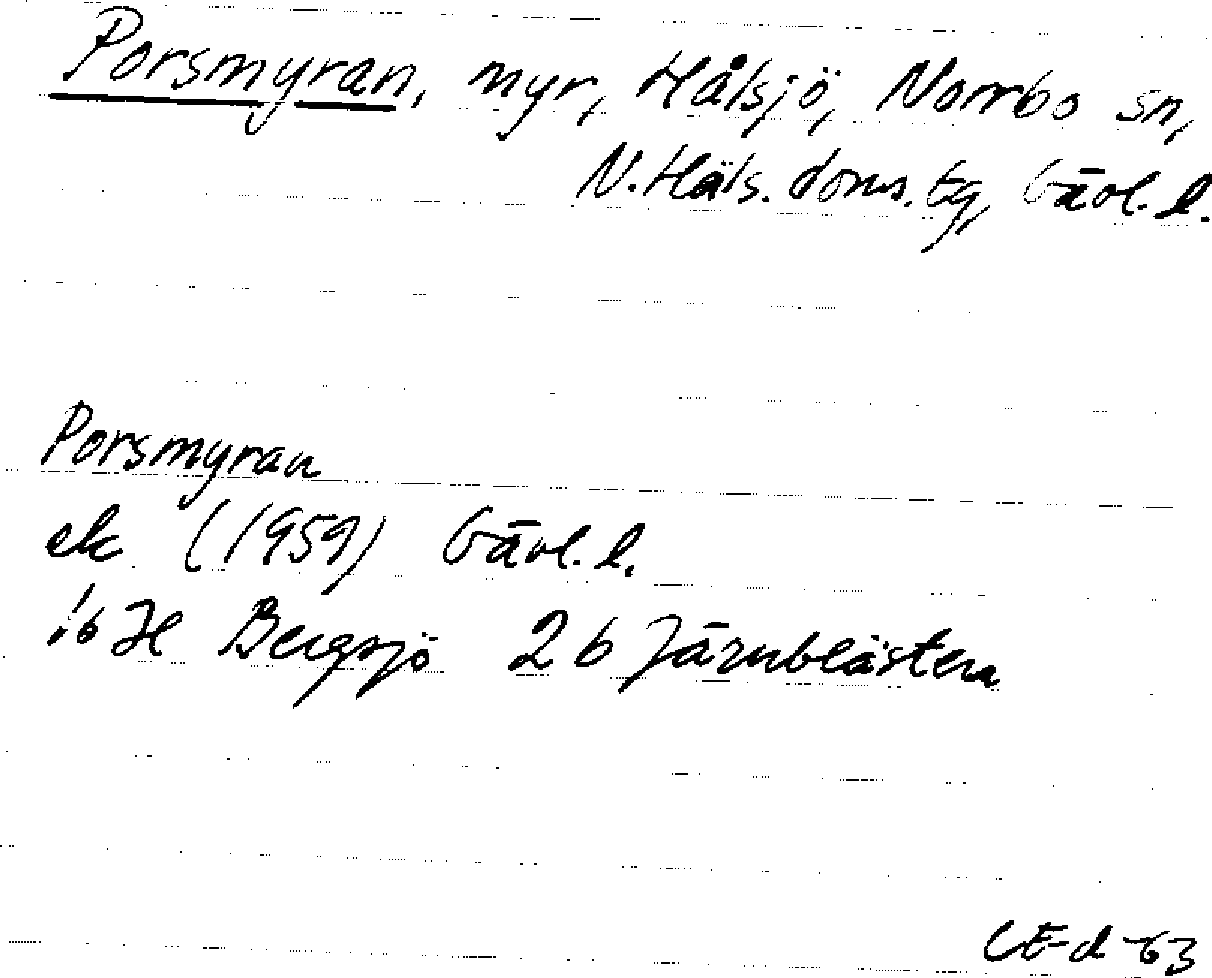 Porsmyran, myr, Hålsjö, Norrbo sn,
N. Häls. doms. tg, Gävl. l.
Porsmyran
ek (1959) Gävl. l.
16 H Bergsjö 2 b Järnblästen
CE-d -63